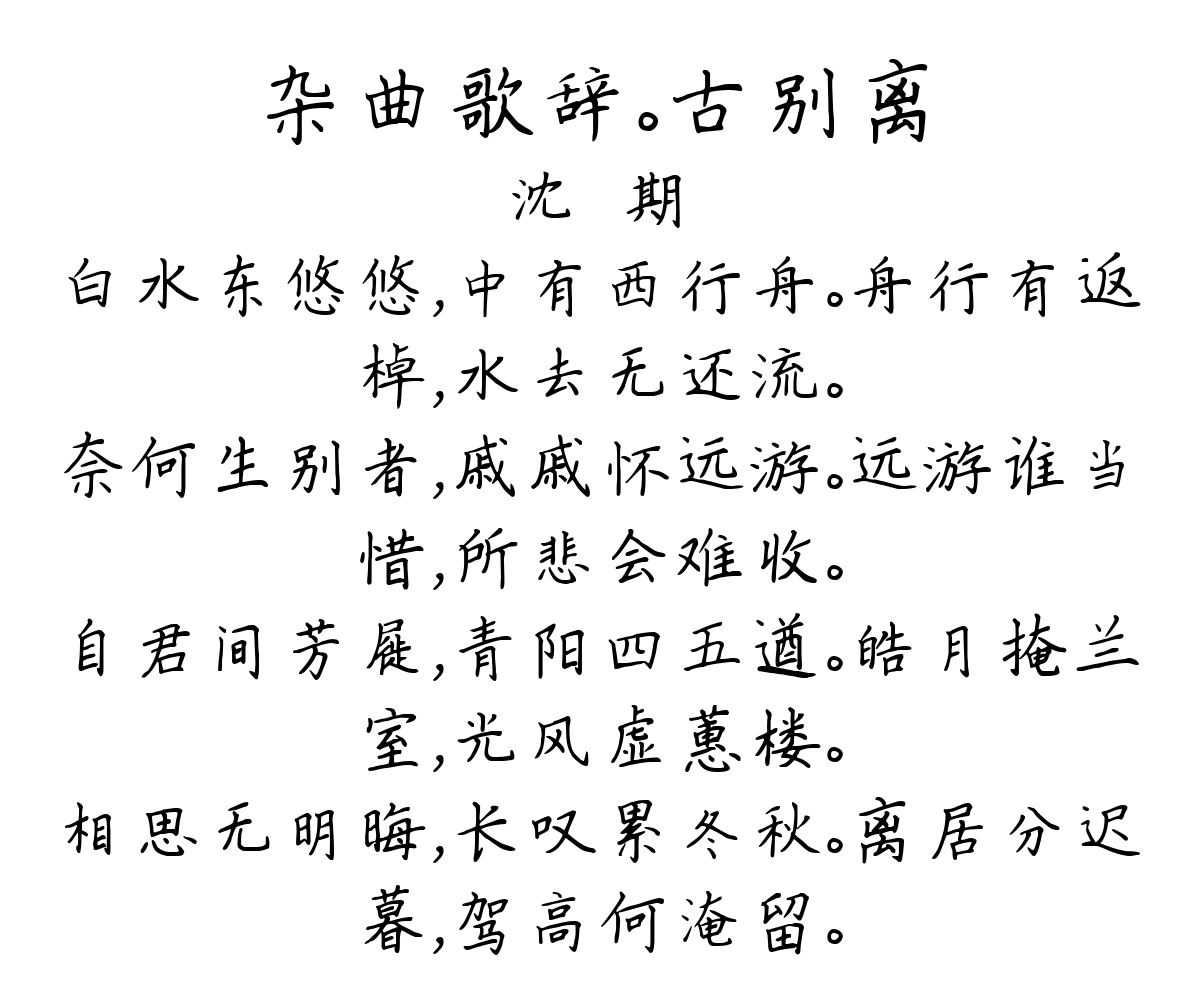 杂曲歌辞。古别离
沈 期
白水东悠悠,中有西行舟。舟行有返
棹,水去无还流。
奈何生别者,戚戚怀远游。远游谁当
惜,所悲会难收。
自君间芳屣,青阳四五遒。皓月掩兰
室,光风虚蕙楼。
相思无明晦,长叹累冬秋。离居分迟
暮,驾高何淹留。